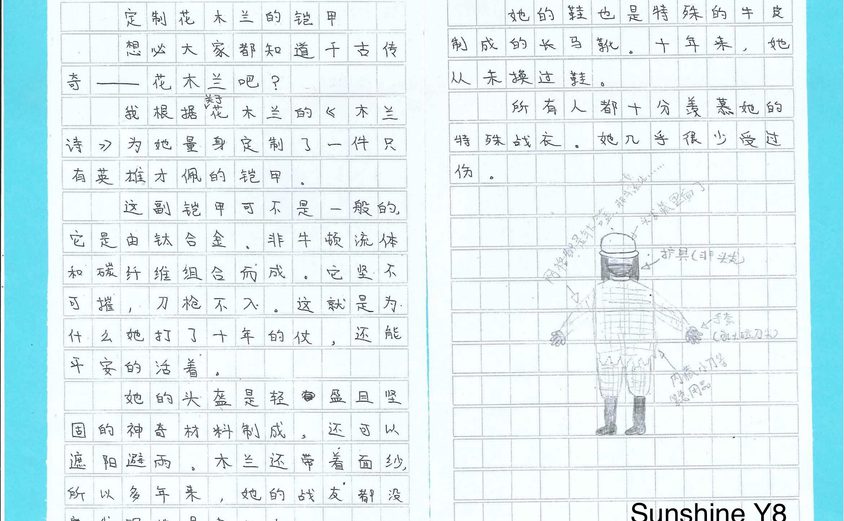 定制花木兰的铠甲
想必大家都知道千古传
奇——花木兰吧？
我根据关于花木兰的《木兰
诗》为她量身定制了一件只
有英雄才佩的铠甲。
这副铠甲可不是一般的，
它是由钛合金、非牛顿流体
和碳纤维组合而成。它坚不
可摧，刀枪不入。这就是为
什么她打了十年的仗，还能
平安的活着。
她的头盔是轻盈且坚
固的神奇材料制成，还可以
遮阳避雨。木兰还带着面纱，
所以多年来，她的战友都没
她的鞋也是特殊的牛皮
制成的长马靴。十年来，她
从未换过鞋。
所有人都十分羡慕她的
特殊战衣。她几乎很少受过
伤。
护具(非头发)
手套
内藏小刀等
Sunshine Y8